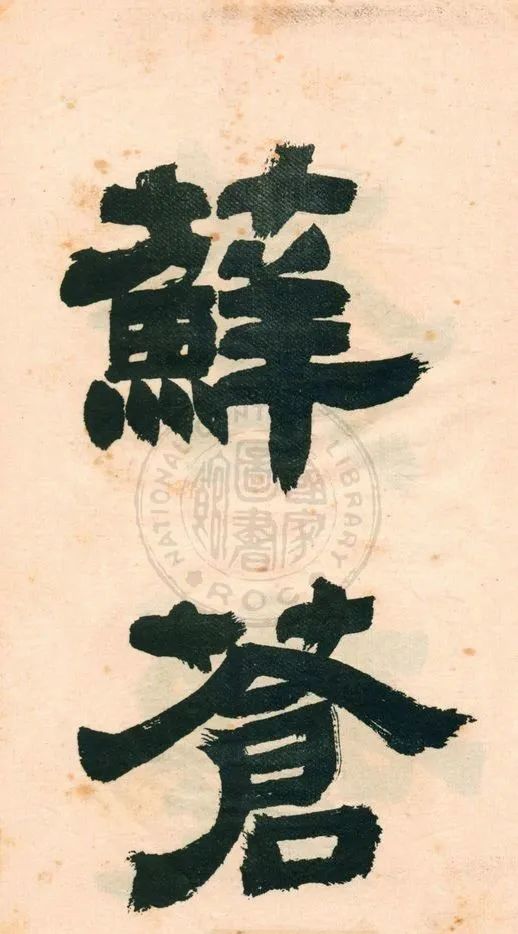 蘚
蒼
NATIONAL CENTRAL LIBRARY
R.O.C.
國家
圖書
館